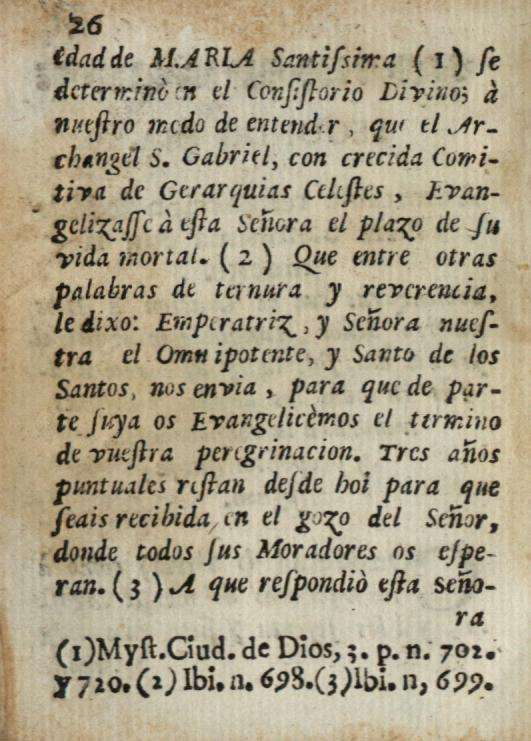 26
edad de MARIA Santiſsima (1) ſe
determinò en el Conſiſtorio Divino; à
nueſtro modo de entender, que el Ar-
changel S. Gabriel, con crecida Comi-
tiva de Gerarquias Celeſtes, Evan-
gelizaſſe à eſta Señora el plazo de ſu
vida mortal. (2) Que entre otras
palabras de ternura y reverencia,
le dixo: Emperatriz, y Señora nueſ-
tra el Omnipotente, y Santo de los
Santos, nos envia, para que de par-
te ſuya os Evangelicèmos el termino
de vueſtra peregrinacion. Tres años
puntuales reſtan deſde hoi para que
ſeais recibida en el gozo del Señor,
donde todos ſus Moradores os eſpe-
ran. (3) A que reſpondiò eſta Seño-
ra
(1) Myſt. Ciud. de Dios, 3. p. n. 702.
y 720. (2) Ibi. n. 698. (3) Ibi. n, 699.